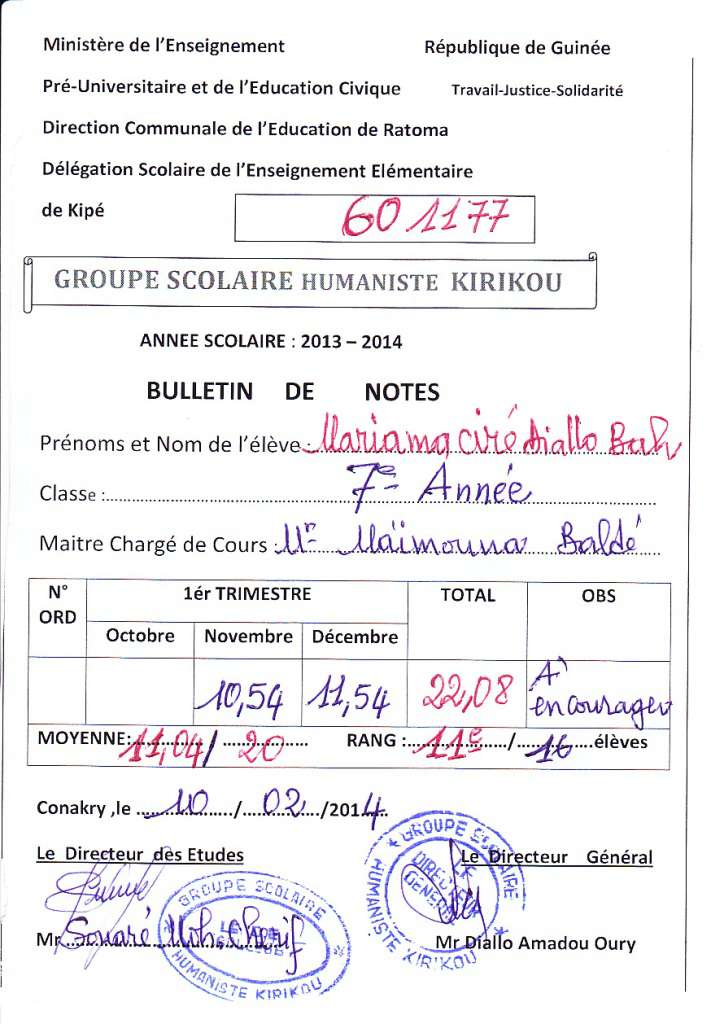 Ministère de l'Enseignement République de Guinée
Pré-Universitaire et de l'Education Civique Travail-Justice-Solidarité
Direction Communale de l'Education de Ratoma
Délégation Scolaire de l'Enseignement Elémentaire
de Kipé 601177
GROUPE SCOLAIRE HUMANISTE KIRIKOU
ANNEE SCOLAIRE : 2013 – 2014
BULLETIN DE NOTES
Prénoms et Nom de l'élève : Mariama ciré Diallo Bah
Classe : 7e Année
Maitre Chargé de Cours : Mr Maïmouna Baldé
N° ORD 1ér TRIMESTRE TOTAL OBS
Octobre Novembre Décembre
10,54 11,54 22,08 A encourager
MOYENNE: 11,04/ 20 RANG : 11e / 16 élèves
Conakry ,le 10 / 02 /2014
Le Directeur des Etudes Le Directeur Général
GROUPE SCOLAIRE
HUMANISTE KIRIKOU
GROUPE SCOLAIRE
HUMANISTE KIRIKOU
Mr Souaré Moh Cherif Mr Diallo Amadou Oury